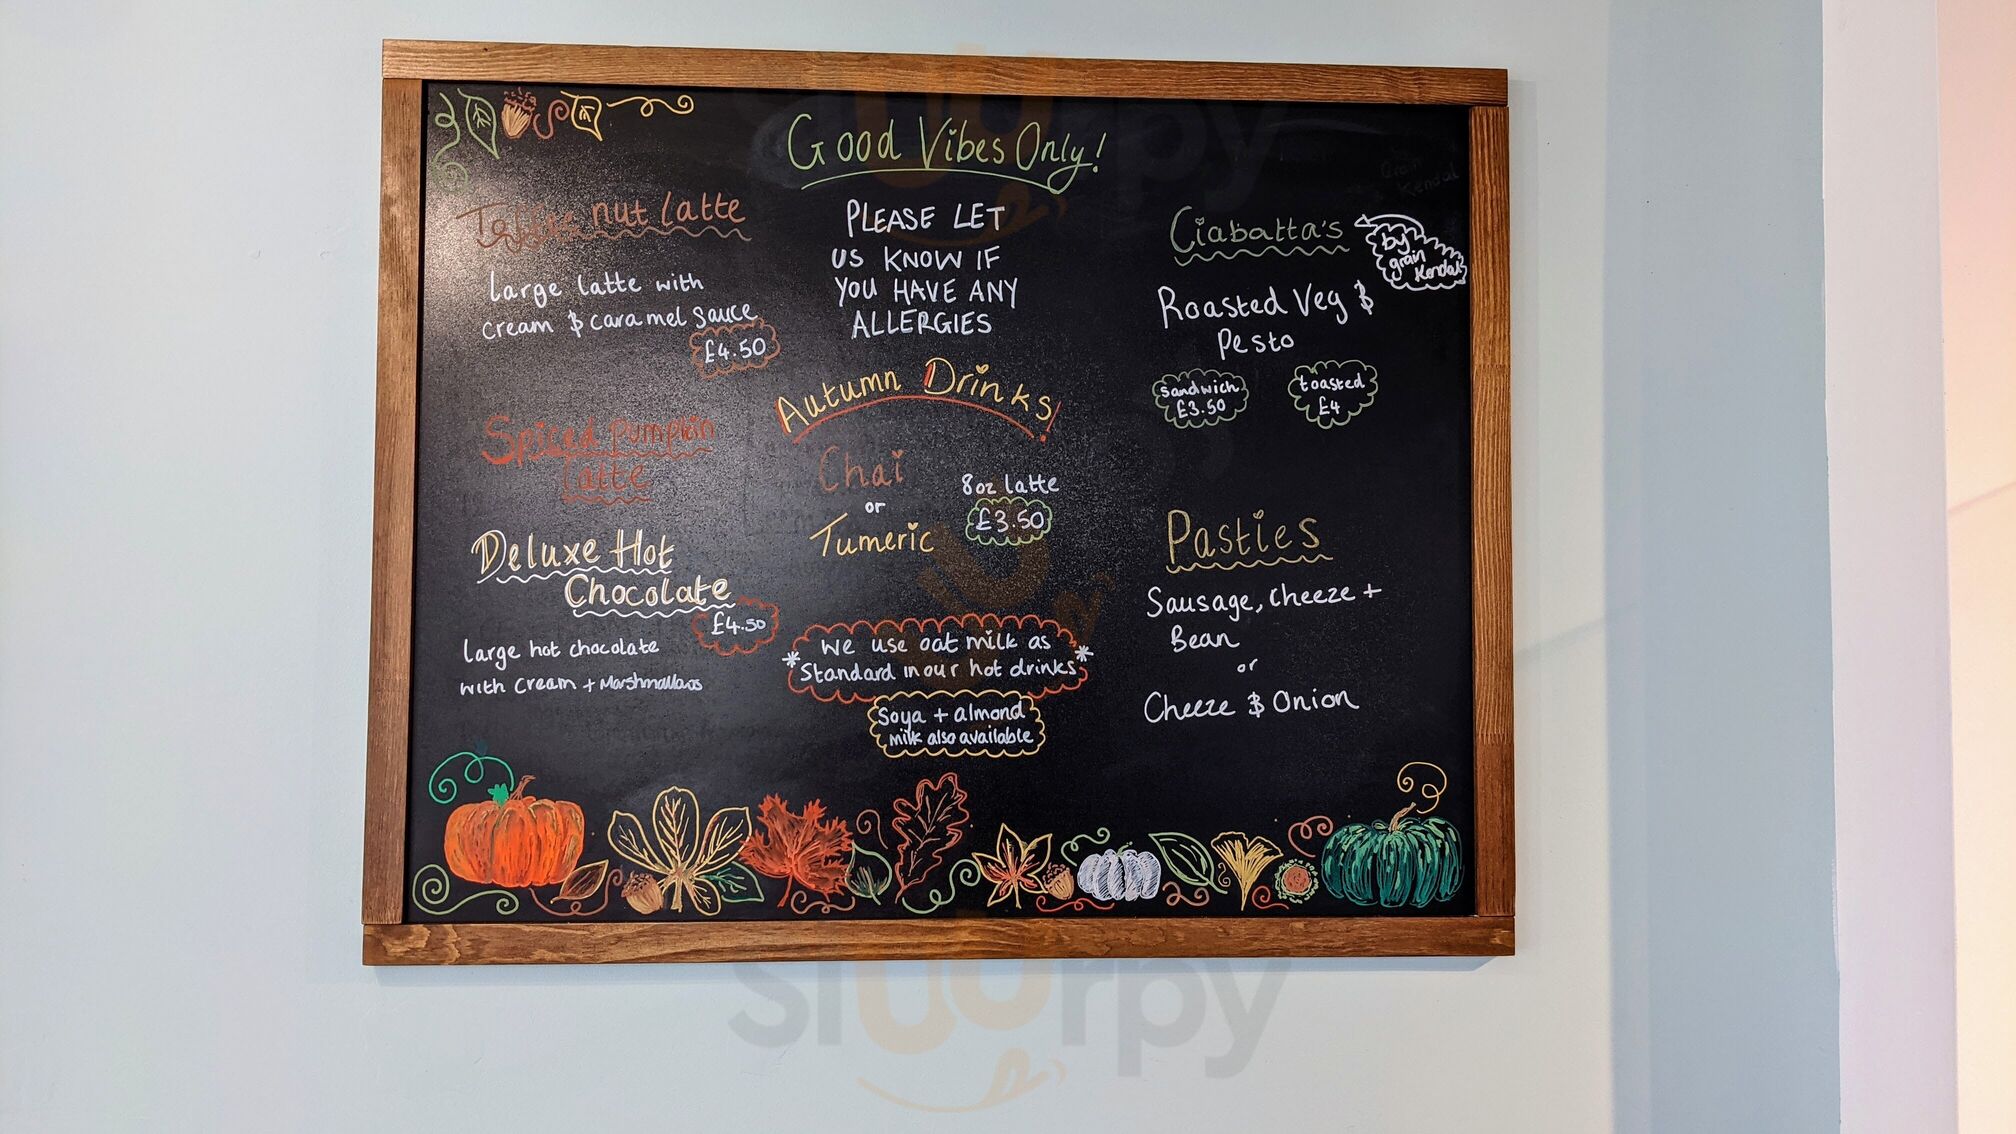 Good Vibes Only!
Toffee nut latte
large latte with
cream & caramel sauce
£4.50
Spiced pumpkin
latte
Deluxe Hot
Chocolate
£4.50
large hot chocolate
with cream + Marshmallows
PLEASE LET
US KNOW IF
YOU HAVE ANY
ALLERGIES
Autumn Drinks!
Chai
or
Tumeric
8oz latte
£3.50
We use oat milk as
*Standard in our hot drinks*
Soya + almond
milk also available
Ciabatta's
by
grain
Kendal
Roasted Veg &
Pesto
sandwich
£3.50
toasted
£4
Pasties
Sausage, Cheeze +
Bean
or
Cheeze & Onion
Grain
Kendal
slurpy
slurpy